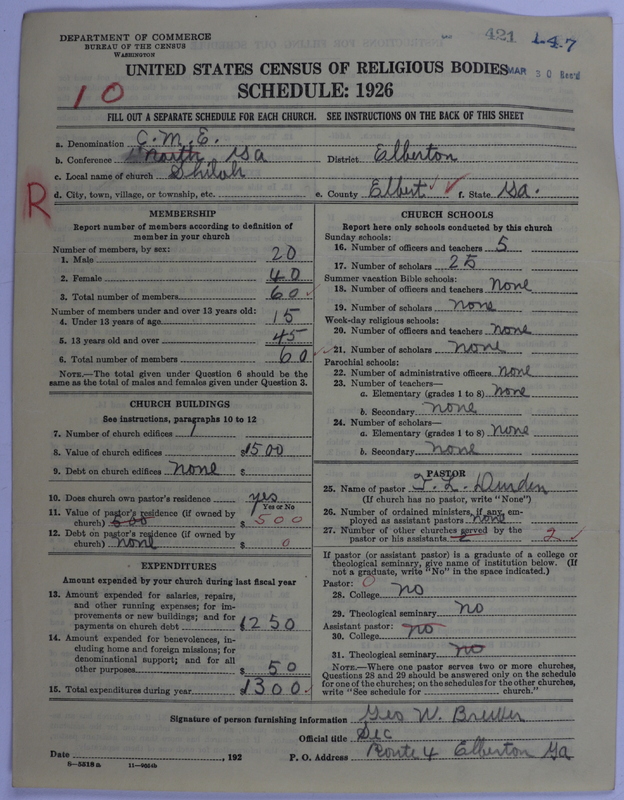 DEPARTMENT OF COMMERCE
BUREAU OF THE CENSUS
WASHINGTON
421 L47
MAR 30 Rec'd
UNITED STATES CENSUS OF RELIGIOUS BODIES
SCHEDULE: 1926
10
FILL OUT A SEPARATE SCHEDULE FOR EACH CHURCH. SEE INSTRUCTIONS ON THE BACK OF THIS SHEET
a. Denomination C. M. E.
b. Conference North Ga District Elberton
c. Local name of church Shiloh
d. City, town, village, or township, etc. e. County Elbert f. State Ga.
R
MEMBERSHIP
Report number of members according to definition of
member in your church
Number of members, by sex:
1. Male 20
2. Female 40
3. Total number of members 60
Number of members under and over 13 years old:
4. Under 13 years of age 15
5. 13 years old and over 45
6. Total number of members 60
NOTE.—The total given under Question 6 should be
the same as the total of males and females given under Question 3.
CHURCH BUILDINGS
See instructions, paragraphs 10 to 12
7. Number of church edifices 1
8. Value of church edifices $1500
9. Debt on church edifices none $
10. Does church own pastor's residence yes
Yes or No
11. Value of pastor's residence (if owned by
church) 500 $ 500
12. Debt on pastor's residence (if owned by
church) none $ 0
EXPENDITURES
Amount expended by your church during last fiscal year
13. Amount expended for salaries, repairs,
and other running expenses; for im-
provements or new buildings; and for
payments on church debt $1250
14. Amount expended for benevolences, in-
cluding home and foreign missions; for
denominational support; and for all
other purposes $ 50
15. Total expenditures during year $1300
CHURCH SCHOOLS
Report here only schools conducted by this church
Sunday schools:
16. Number of officers and teachers 5
17. Number of scholars 25
Summer vacation Bible schools:
18. Number of officers and teachers none
19. Number of scholars none
Week-day religious schools:
20. Number of officers and teachers none
21. Number of scholars none
Parochial schools:
22. Number of administrative officers none
23. Number of teachers—
a. Elementary (grades 1 to 8) none
b. Secondary none
24. Number of scholars—
a. Elementary (grades 1 to 8) none
b. Secondary none
PASTOR
25. Name of pastor T. L. Durden
(If church has no pastor, write "None")
26. Number of ordained ministers, if any, em-
ployed as assistant pastors none
27. Number of other churches served by the
pastor or his assistants 2 2
If pastor (or assistant pastor) is a graduate of a college or
theological seminary, give name of institution below. (If
not a graduate, write "No" in the space indicated.)
Pastor: 0
28. College no
29. Theological seminary no
Assistant pastor:
30. College no
31. Theological seminary no
NOTE.—Where one pastor serves two or more churches,
Questions 28 and 29 should be answered only on the schedule
for one of the churches; on the schedules for the other churches,
write "See schedule for church."
Signature of person furnishing information Geo W. Brewer
Official title Sec
Date , 192 P. O. Address Route 4 Elberton Ga
8—5518a 11—9664b